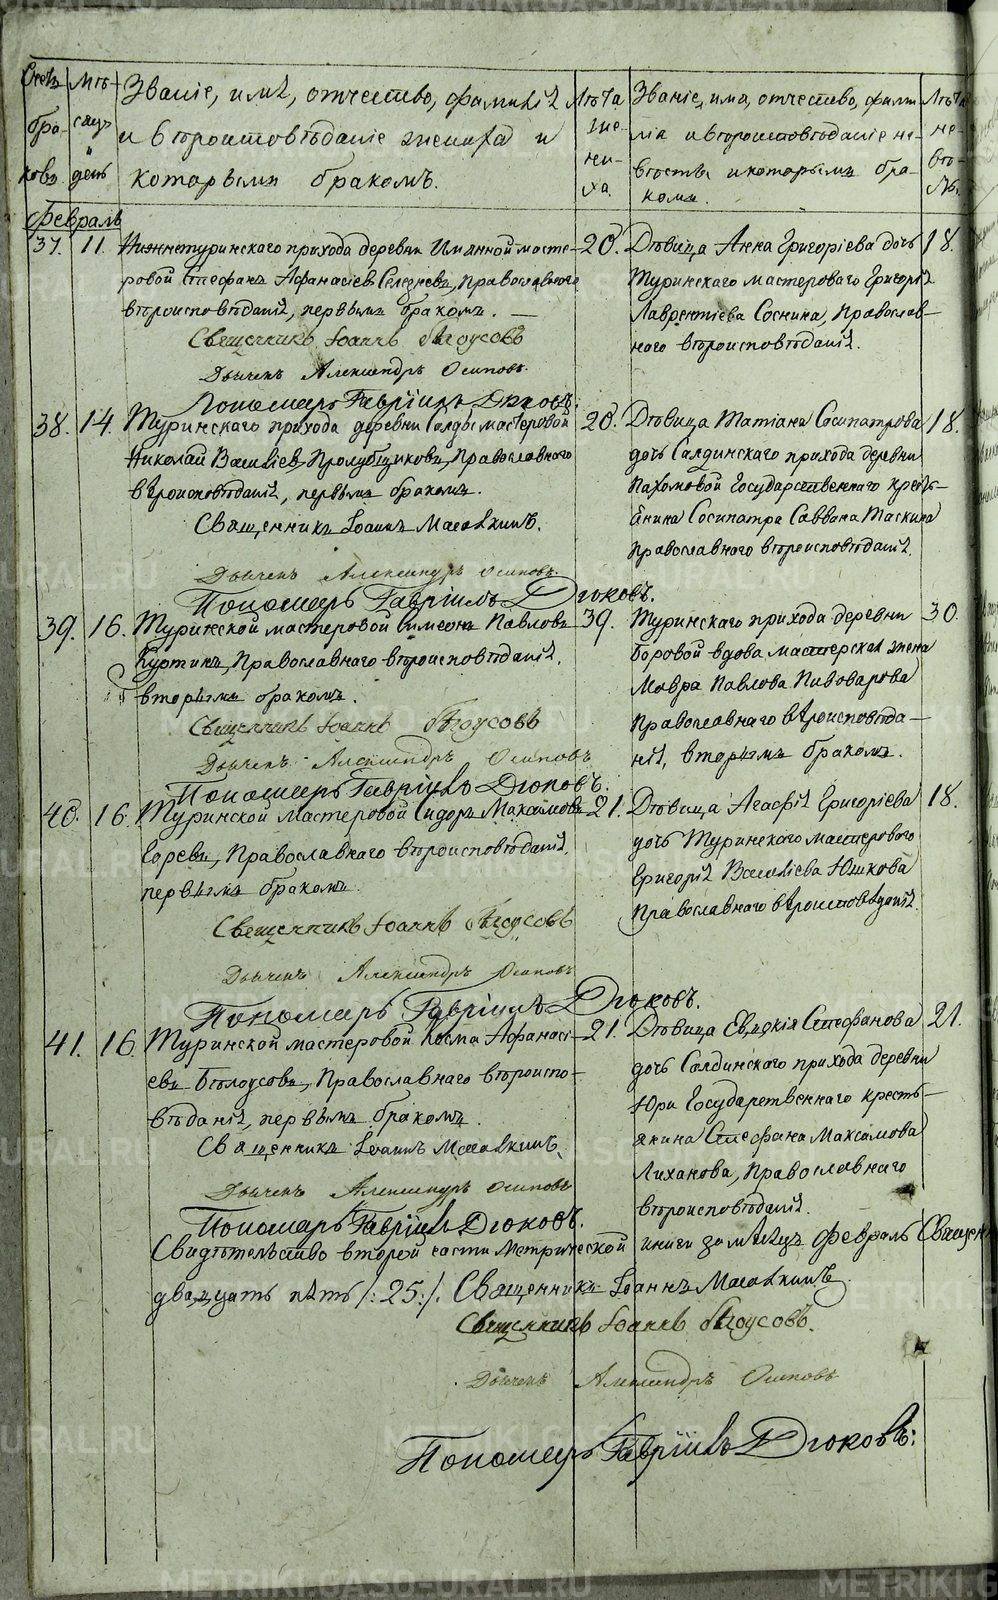 Счетъ браковъ
Мѣсяцъ и день
Званіе, имя, отчество, фамилія
и вѣроисповѣданіе жениха и
которымъ бракомъ.
Лѣта жениха.
Званіе, имя, отчество, фамилія
и вѣроисповѣданіе невѣсты, и которымъ бракомъ.
Лѣта невѣсты.
Февраль
37. 11. Нижнетуринскаго прихода деревни Именной мастеровой
Стефанъ Афанасіевъ Селезневъ, Православнаго
вѣроисповѣданія, первымъ бракомъ.
20.
Дѣвица Анна Григоріева дочь
Туринскаго мастероваго Григорія
Лаврентіева Соснина, Православнаго
вѣроисповѣданія.
18.
Священникъ Іоаннъ Бѣлоусовъ
Дьяченъ Александръ Осиповъ.
Пономарь Гавріилъ Дюковъ.
38. 14. Туринскаго прихода деревни Салды мастеровой
Николай Василіевъ Пролубщиковъ, Православнаго
вѣроисповѣданія, первымъ бракомъ.
20.
Дѣвица Татіана Сосипатрова
дочь Салдинскаго прихода деревни
Пахомовой Государственнаго крестьянина
Сосипатра Саввина Таскина
Православнаго вѣроисповѣданія.
18.
Священникъ Іоаннъ
Дьяченъ Александръ Осиповъ.
Пономарь Гавріилъ Дюковъ.
39. 16. Туринской мастеровой Симеонъ Павловъ
Куртинъ, Православнаго вѣроисповѣданія,
вторымъ бракомъ.
39.
Туринскаго прихода деревни
Боровой вдова мастерская жена
Мавра Павлова Пивоварова
Православнаго вѣроисповѣданія,
вторымъ бракомъ.
30.
Священникъ Іоаннъ Бѣлоусовъ
Дьяченъ Александръ Осиповъ
Пономарь Гавріилъ Дюковъ.
40. 16. Туринской мастеровой Сидоръ Максимовъ
Царевъ, Православнаго вѣроисповѣданія,
первымъ бракомъ.
21.
Дѣвица Агафія Григоріева
дочь Туринскаго мастероваго
Григорія Василіева Юшкова
Православнаго вѣроисповѣданія.
18.
Священникъ Іоаннъ Бѣлоусовъ
Дьяченъ Александръ Осиповъ
Пономарь Гавріилъ Дюковъ.
41. 16. Туринской мастеровой Косма Афанасіевъ
Бѣлоусовъ, Православнаго вѣроисповѣданія,
первымъ бракомъ.
21.
Дѣвица Евдокія Стефанова
дочь Салдинскаго прихода деревни
Юри Государственнаго крестьянина
Стефана Максимова
Лиханова, Православнаго
вѣроисповѣданія.
21.
Священникъ Іоаннъ
Дьяченъ Александръ Осиповъ
Пономарь Гавріилъ Дюковъ.
Свидѣтельство второй части Метрической книги за мѣсяцъ Февраль
двадцать пять /:25:/. Священникъ Іоаннъ
Священникъ Іоаннъ Бѣлоусовъ.
Дьяченъ Александръ Осиповъ
Пономарь Гавріилъ Дюковъ:
METRIKI.GASO-URAL.RU